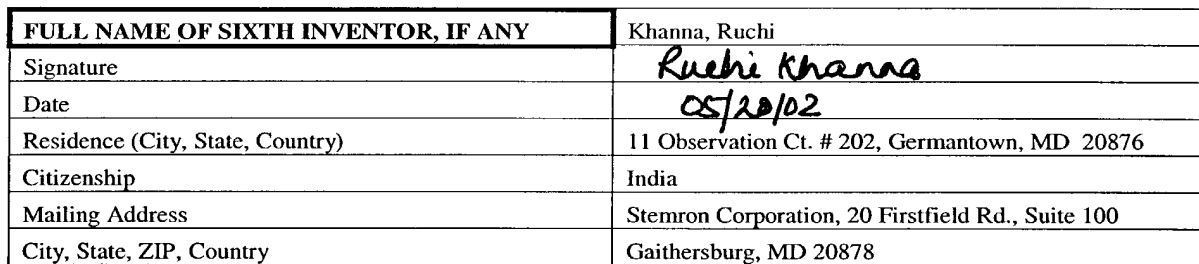 FULL NAME OF SIXTH INVENTOR, IF ANY Khanna, Ruchi
Signature Ruchi Khanna
Date 05/20/02
Residence (City, State, Country) 11 Observation Ct. # 202, Germantown, MD 20876
Citizenship India
Mailing Address Stemron Corporation, 20 Firstfield Rd., Suite 100
City, State, ZIP, Country Gaithersburg, MD 20878